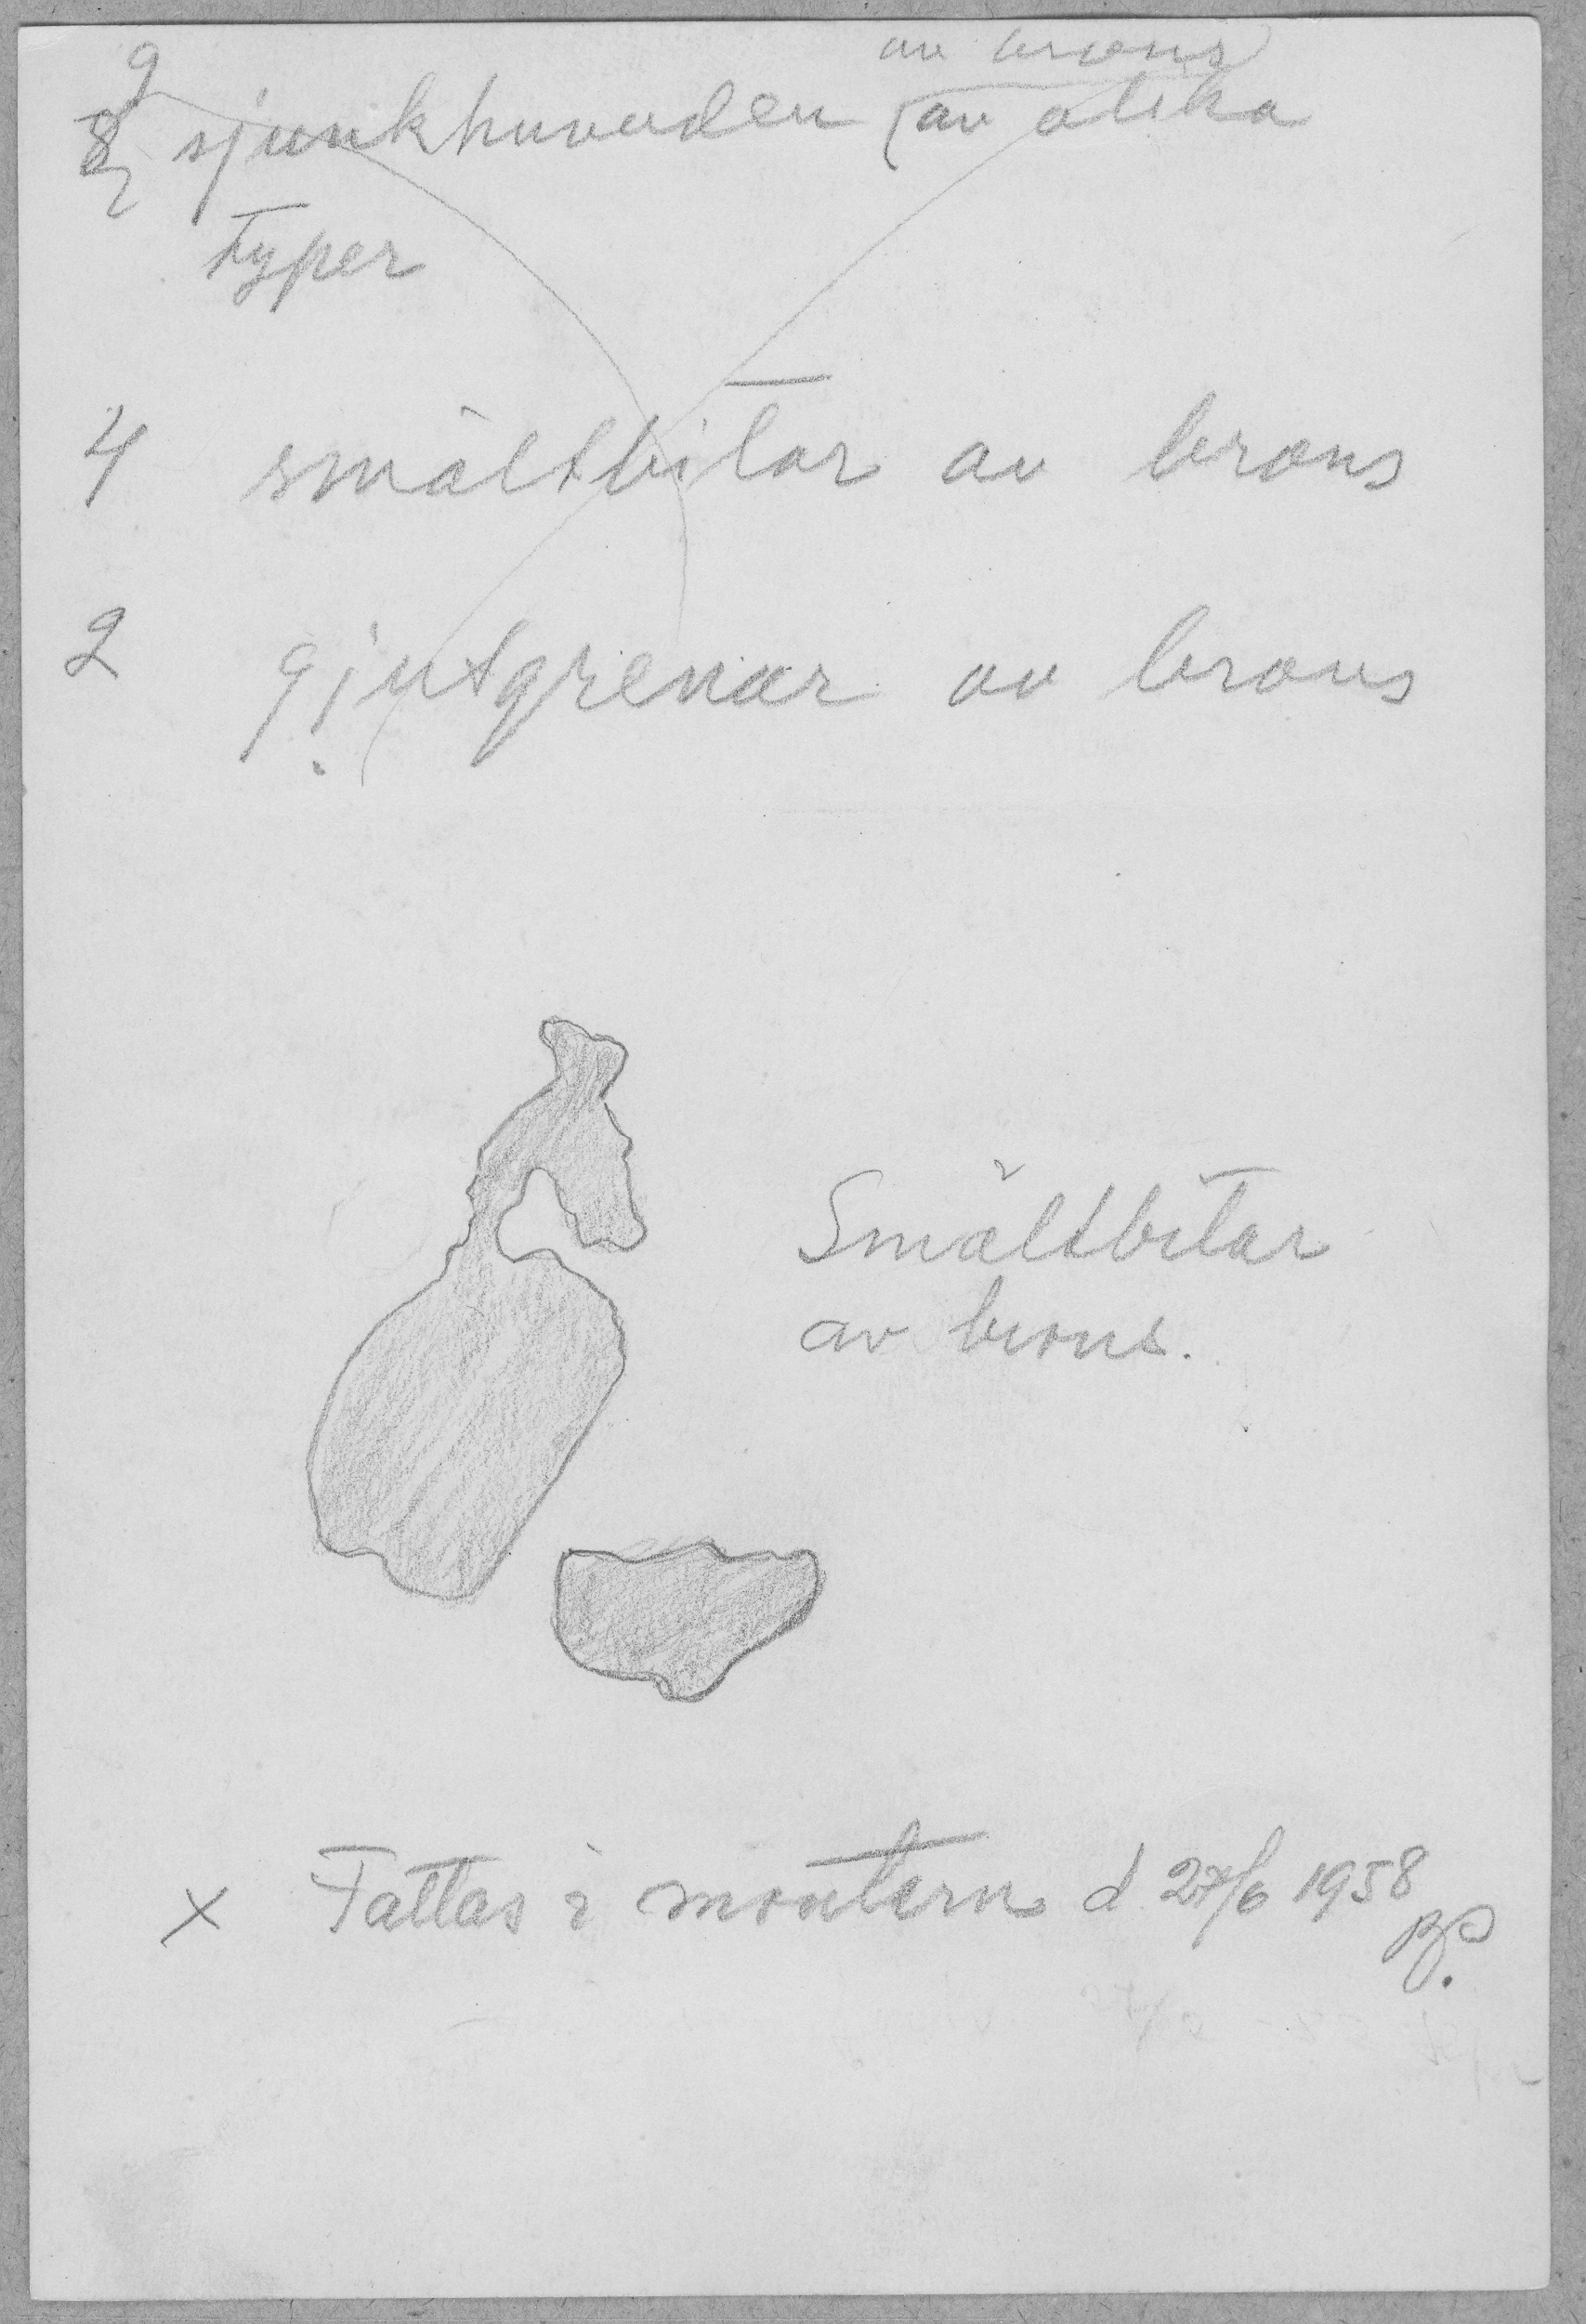 av brons
9
8 sjunkhuvuden (av olika
typer
4 smältbitar av brons
2 gjutgrenar av brons
Smältbitar
av brons.
x Fattas i montern d. 27/6 1958